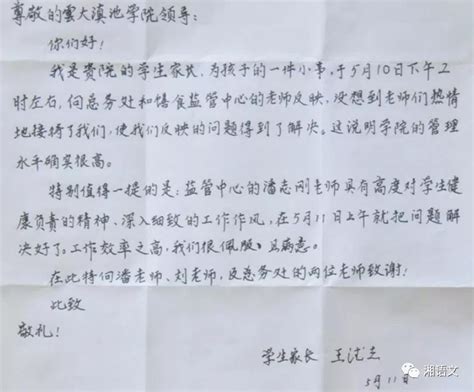 尊敬的雲大滇池学院领导：
你们好！
我是贵院的学生家长，为孩子的一件小事，于5月10日下午工
时左右，向总务处和膳食监管中心的老师反映，没想到老师们热情
地接待了我们，使我们反映的问题得到了解决。这说明学院的管理
水平确实很高。
特别值得一提的是：监管中心的潘志刚老师具有高度对学生健
康负责的精神、深入细致的工作作风，在5月11日上午就把问题解
决好了。工作效率之高，我们很佩服且满意。
在此特向潘老师、刘老师，及总务处的两位老师致谢！
此致
敬礼！
学生家长 王
5月11日
湘语文